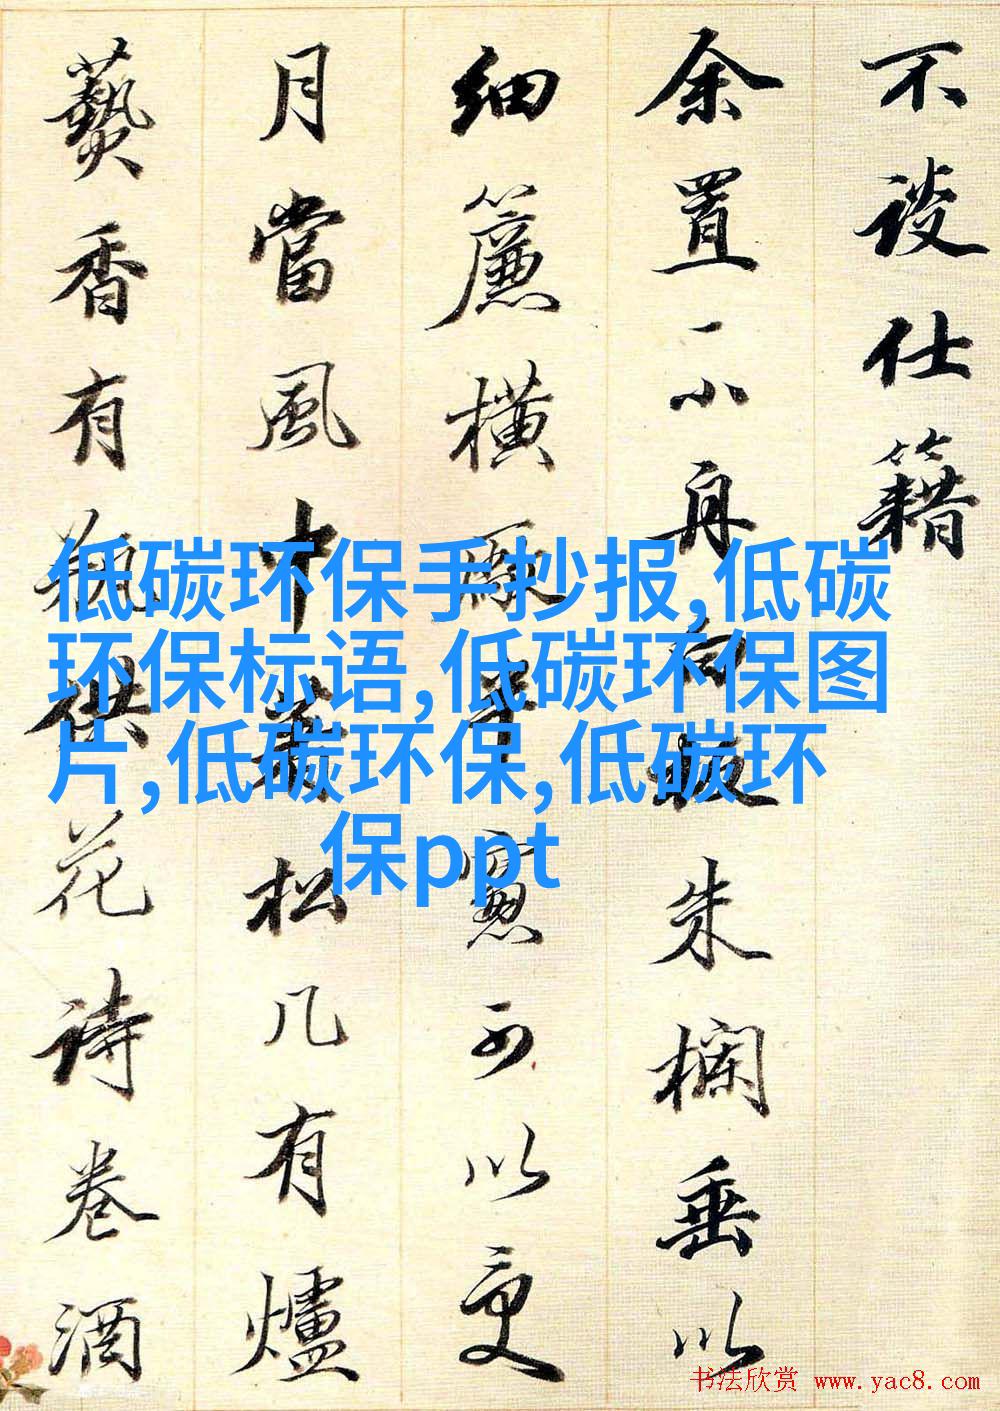 不談仕籍
余置一小舟白朱欄垂以
細簾橫窓可以更
月當風中松几有爐
爇香有瓶供花詩卷酒
低碳环保手抄报,低碳
环保标语,低碳环保图
片,低碳环保,低碳环
保ppt
书法欣赏 www.yac8.com